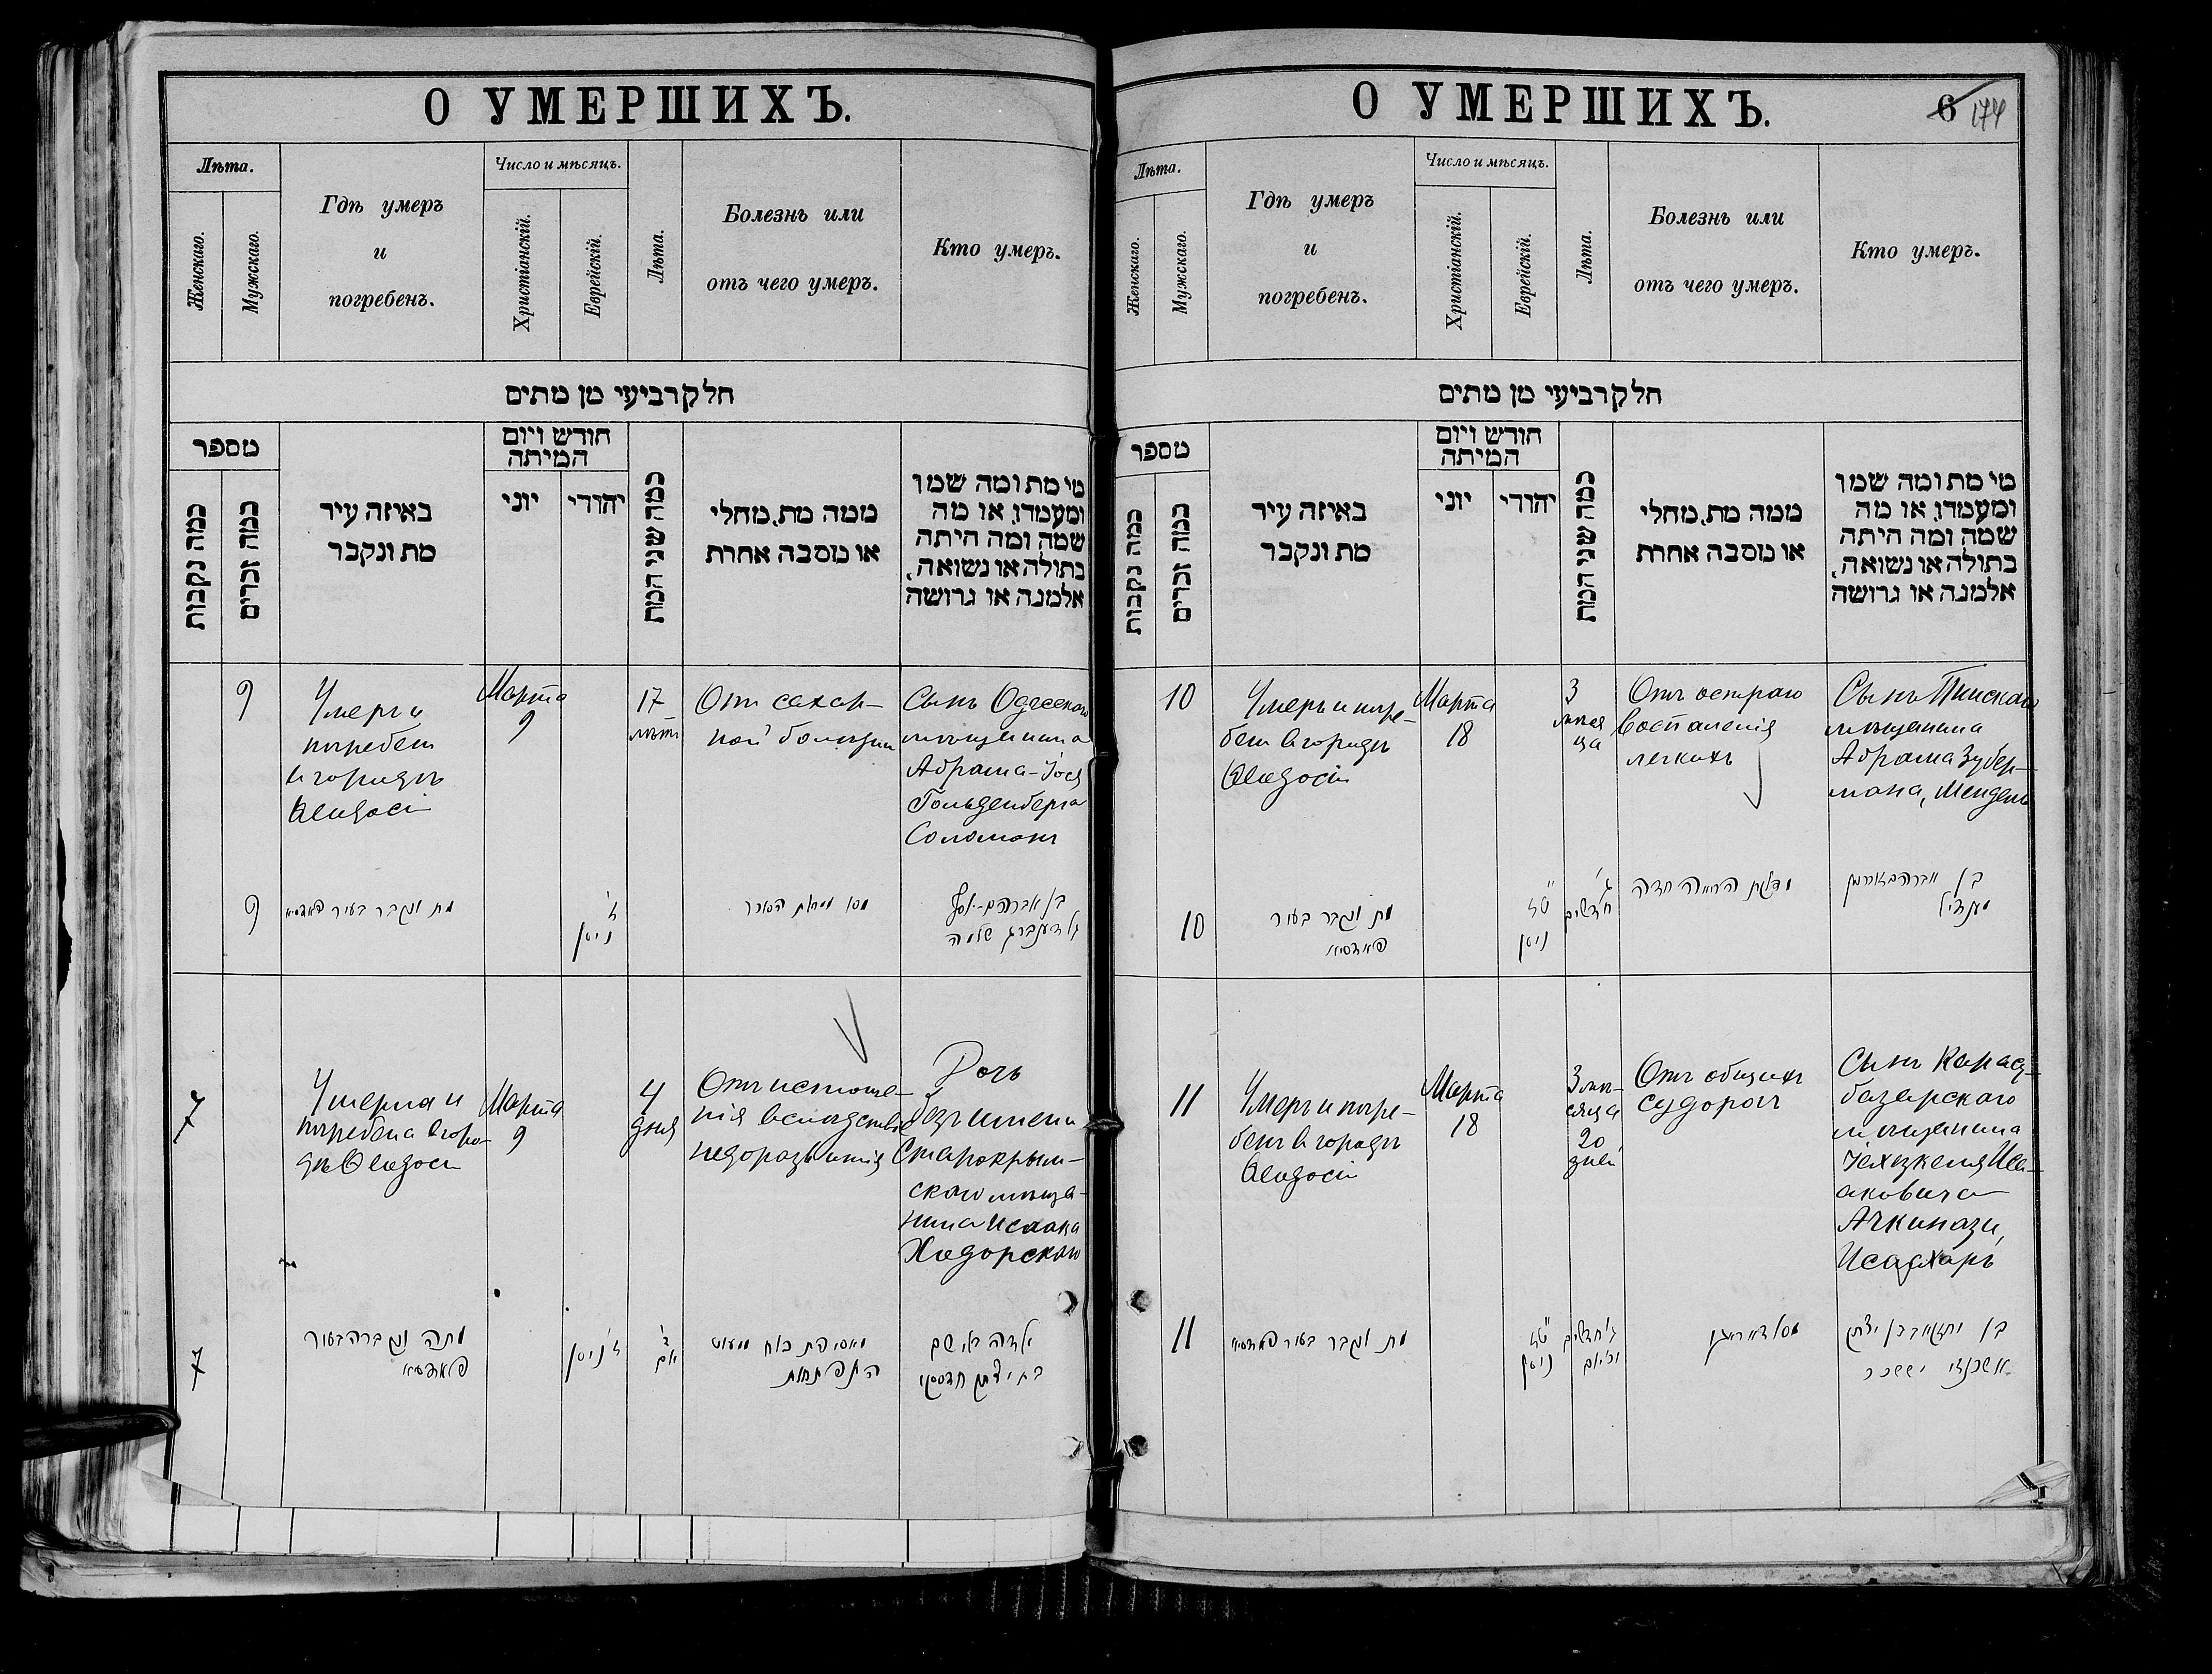 О УМЕРШИХЪ.
Лѣта.
Женскаго.
Мужскаго.
Гдѣ умеръ
и
погребенъ.
Число и мѣсяцъ.
Христіанскій.
Еврейскій.
Лѣта.
Болезнь или
отъ чего умеръ.
Кто умеръ.
חלק רביעי מן מתים
מספר
כמה נקבות
כמה זכרים
באיזה עיר
מת ונקבר
חודש ויום
המיתה
יוני
יהודי
כמה שני המת
ממה מת, מחלי
או מסבה אחרת
מי מת ומה שמו
ומעמדו, או מה
שמה ומה היתה
בתולה או נשואה,
אלמנה או גרושה
9
Умеръ и
погребенъ
в городѣ
Ѳеодосіи
Марта
9
17
лѣтъ
От сахар-
ной болѣзни
Сынъ Одесскаго
мѣщанина
Абрама-Іося
Гольденберга
Соломонъ
9
מת ונקבר בעיר
ז'
ניסן
בן אברהם-יוסף
גולדענברג שלמה
7
Умерла и
погребена в горо-
дѣ Ѳеодосіи
Марта
9
4
дня
Отъ истоще-
нія вслѣдствіе
недоразвитія
Дочь
безъ имени
Старокрым-
скаго мѣща-
нина Исаака
Ходорскаго
7
מתה ונקברה בעיר
ז' ניסן
ד'
יום
ילדה בלי שם
בת יצחק
О УМЕРШИХЪ.
6 174
Лѣта.
Женскаго.
Мужскаго.
Гдѣ умеръ
и
погребенъ.
Число и мѣсяцъ.
Христіанскій.
Еврейскій.
Лѣта.
Болезнь или
отъ чего умеръ.
Кто умеръ.
חלק רביעי מן מתים
מספר
כמה נקבות
כמה זכרים
באיזה עיר
מת ונקבר
חודש ויום
המיתה
יוני
יהודי
כמה שני המת
ממה מת, מחלי
או מסבה אחרת
מי מת ומה שמו
ומעמדו, או מה
שמה ומה היתה
בתולה או נשואה,
אלמנה או גרושה
10
Умеръ и погре-
бенъ в городѣ
Ѳеодосіи
Марта
18
3
мѣся
ца
Отъ остраго
воспаленія
легкихъ
Сынъ Пинскаго
мѣщанина
Абрама Зубер-
мана, Мендель
10
מת ונקבר בעיר
ט"ז
ניסן
ג'
חדשים
מענדיל
11
Умеръ и погре-
бенъ в городѣ
Ѳеодосіи
Марта
18
3 мѣ-
сяца
20
дней
Отъ общихъ
судорогъ
Сынъ Карасу-
базарскаго
мѣщанина
Іехезкеля Иса-
аковича
Ачкинази,
Исасхаръ
11
מת ונקבר בעיר
ט"ז
ניסן
ג' חדשים
וכ' יום
בן יחזקאל בן יצחק
אשכנזי יששכר